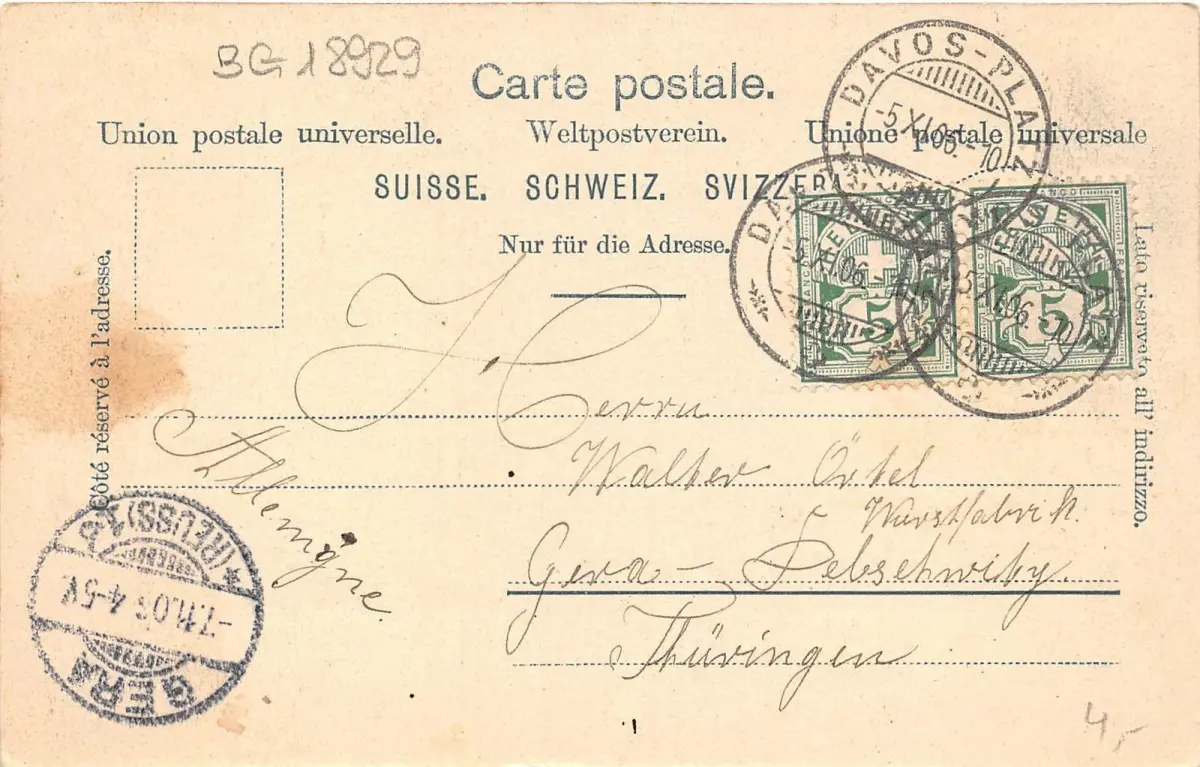 BG 18929
Carte postale.
Union postale universelle. Weltpostverein. Unione postale universale
SUISSE. SCHWEIZ. SVIZZERA.
Nur für die Adresse.
Côté réservé à l'adresse.
Lato riservato all' indirizzo.
DAVOS-PLATZ
-5.XI.06.-10
5.XI.06.-
5.XI.06.-10
5
5
Herrn
Walter Örtel
Wurstfabrik.
Gera-Debschwitz.
Thüringen
Allemagne.
GERA
-7.11.06 4-5V.
*(REUSS)1a
4,-